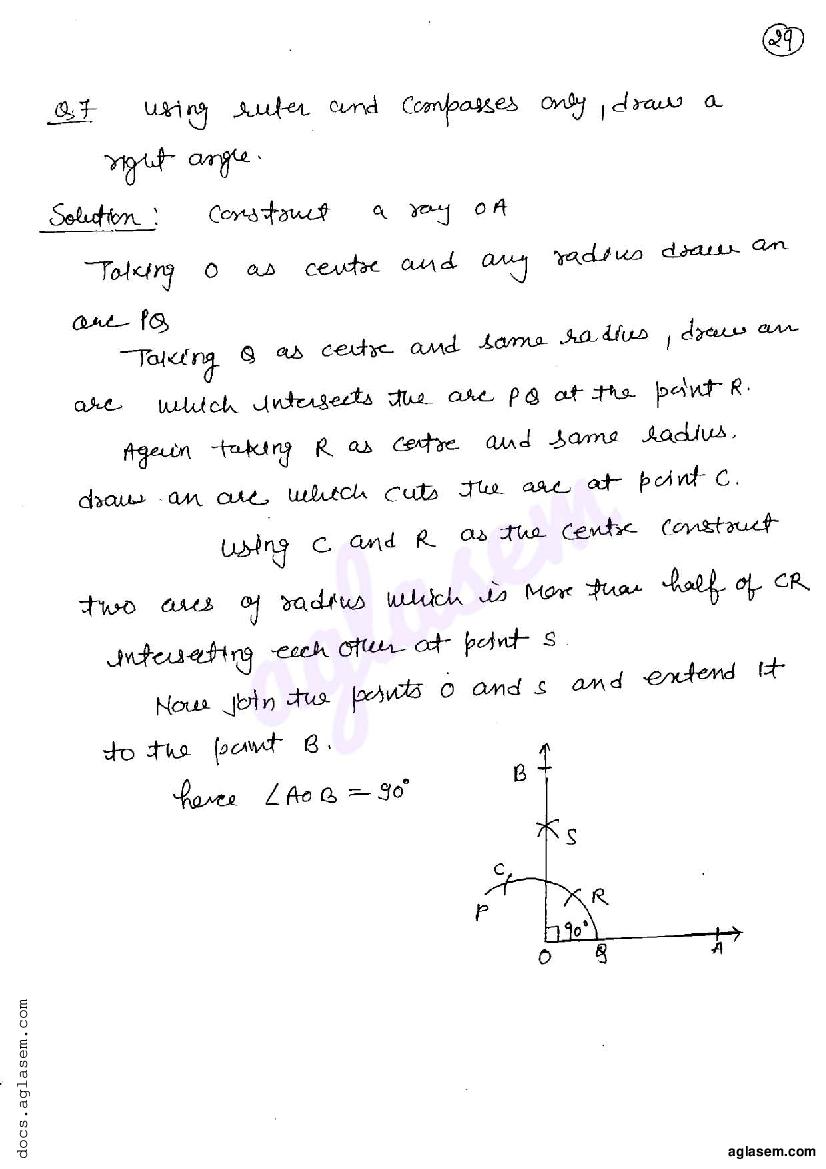 29
Q.7 Using ruler and Compasses only, draw a
right angle.
Solution: Construct a ray OA
Taking O as centre and any radius draw an
arc PQ
Taking Q as centre and same radius, draw an
arc which intersects the arc PQ at the point R.
Again taking R as centre and same radius.
draw an arc which cuts the arc at point C.
Using C and R as the centre construct
two arcs of radius which is more than half of CR
interseting each other at point S.
Now join the points O and S and extend it
to the point B.
hence ∠AOB = 90°
B
S
C
R
P
90°
O
Q
A
aglasem
docs.aglasem.com
aglasem.com